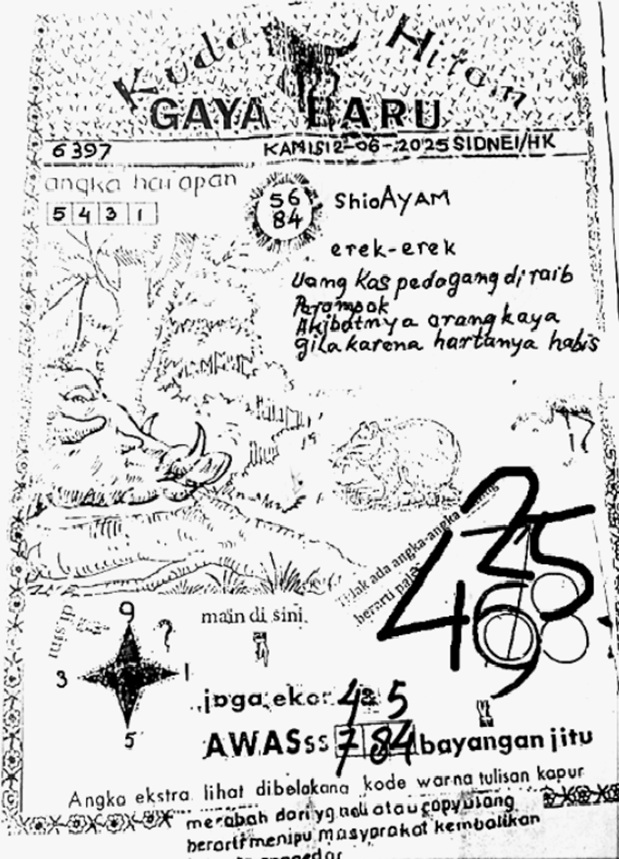 Kuda Hitam
GAYA BARU
6397 KAMIS 12-06-2025 SIDNEI/HK
angka harapan
5 4 3 1
56
84
Shio AYAM
erek-erek
Uang Kas pedagang di raib
Perampok
Akibatnya orang kaya
gila karena hartanya habis
Tidak ada angka-angka
berarti palsu
25
469
di sini
9
?
3 1
5
main di sini
joga ekor 4 & 5
AWASss 7 84 bayangan jitu
Angka ekstra lihat dibelakang kode warna tulisan kapur
merabah dari yg asli atau copy ulang
berarti menipu masyarakat kembalikan